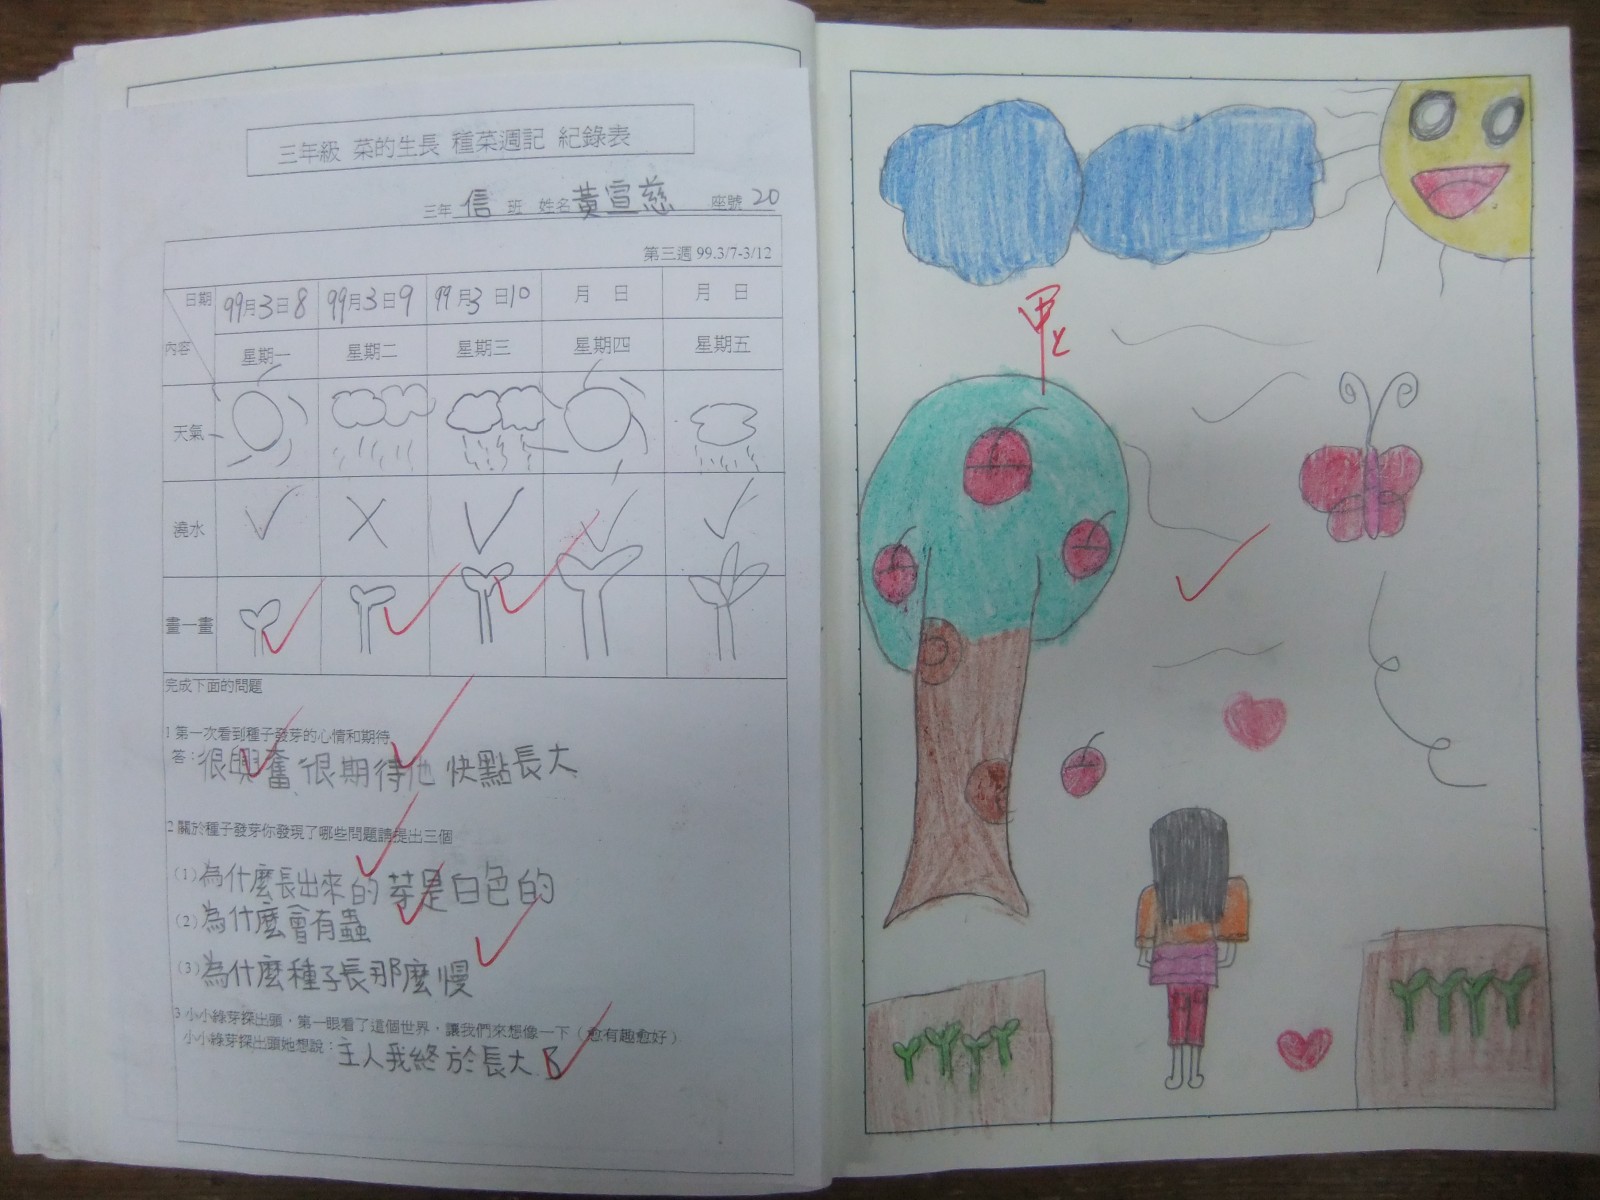 三年級 菜的生長 種菜週記 紀錄表
三年 信 班 姓名 黃宣慈 座號 20
第三週 99.3/7-3/12
日期 99月3日8 99月3日9 99月3日10 月 日 月 日
內容 星期一 星期二 星期三 星期四 星期五
天氣
澆水
畫一畫
完成下面的問題
1 第一次看到種子發芽的心情和期待
答：很興奮 很期待他 快點長大
2 關於種子發芽你發現了哪些問題請提出三個
(1) 為什麼長出來的芽是白色的
(2) 為什麼會有蟲
(3) 為什麼種子長那麼慢
3 小小綠芽探出頭，第一眼看了這個世界，讓我們來想像一下（愈有趣愈好）
小小綠芽探出頭她想說：主人我終於長大
甲上